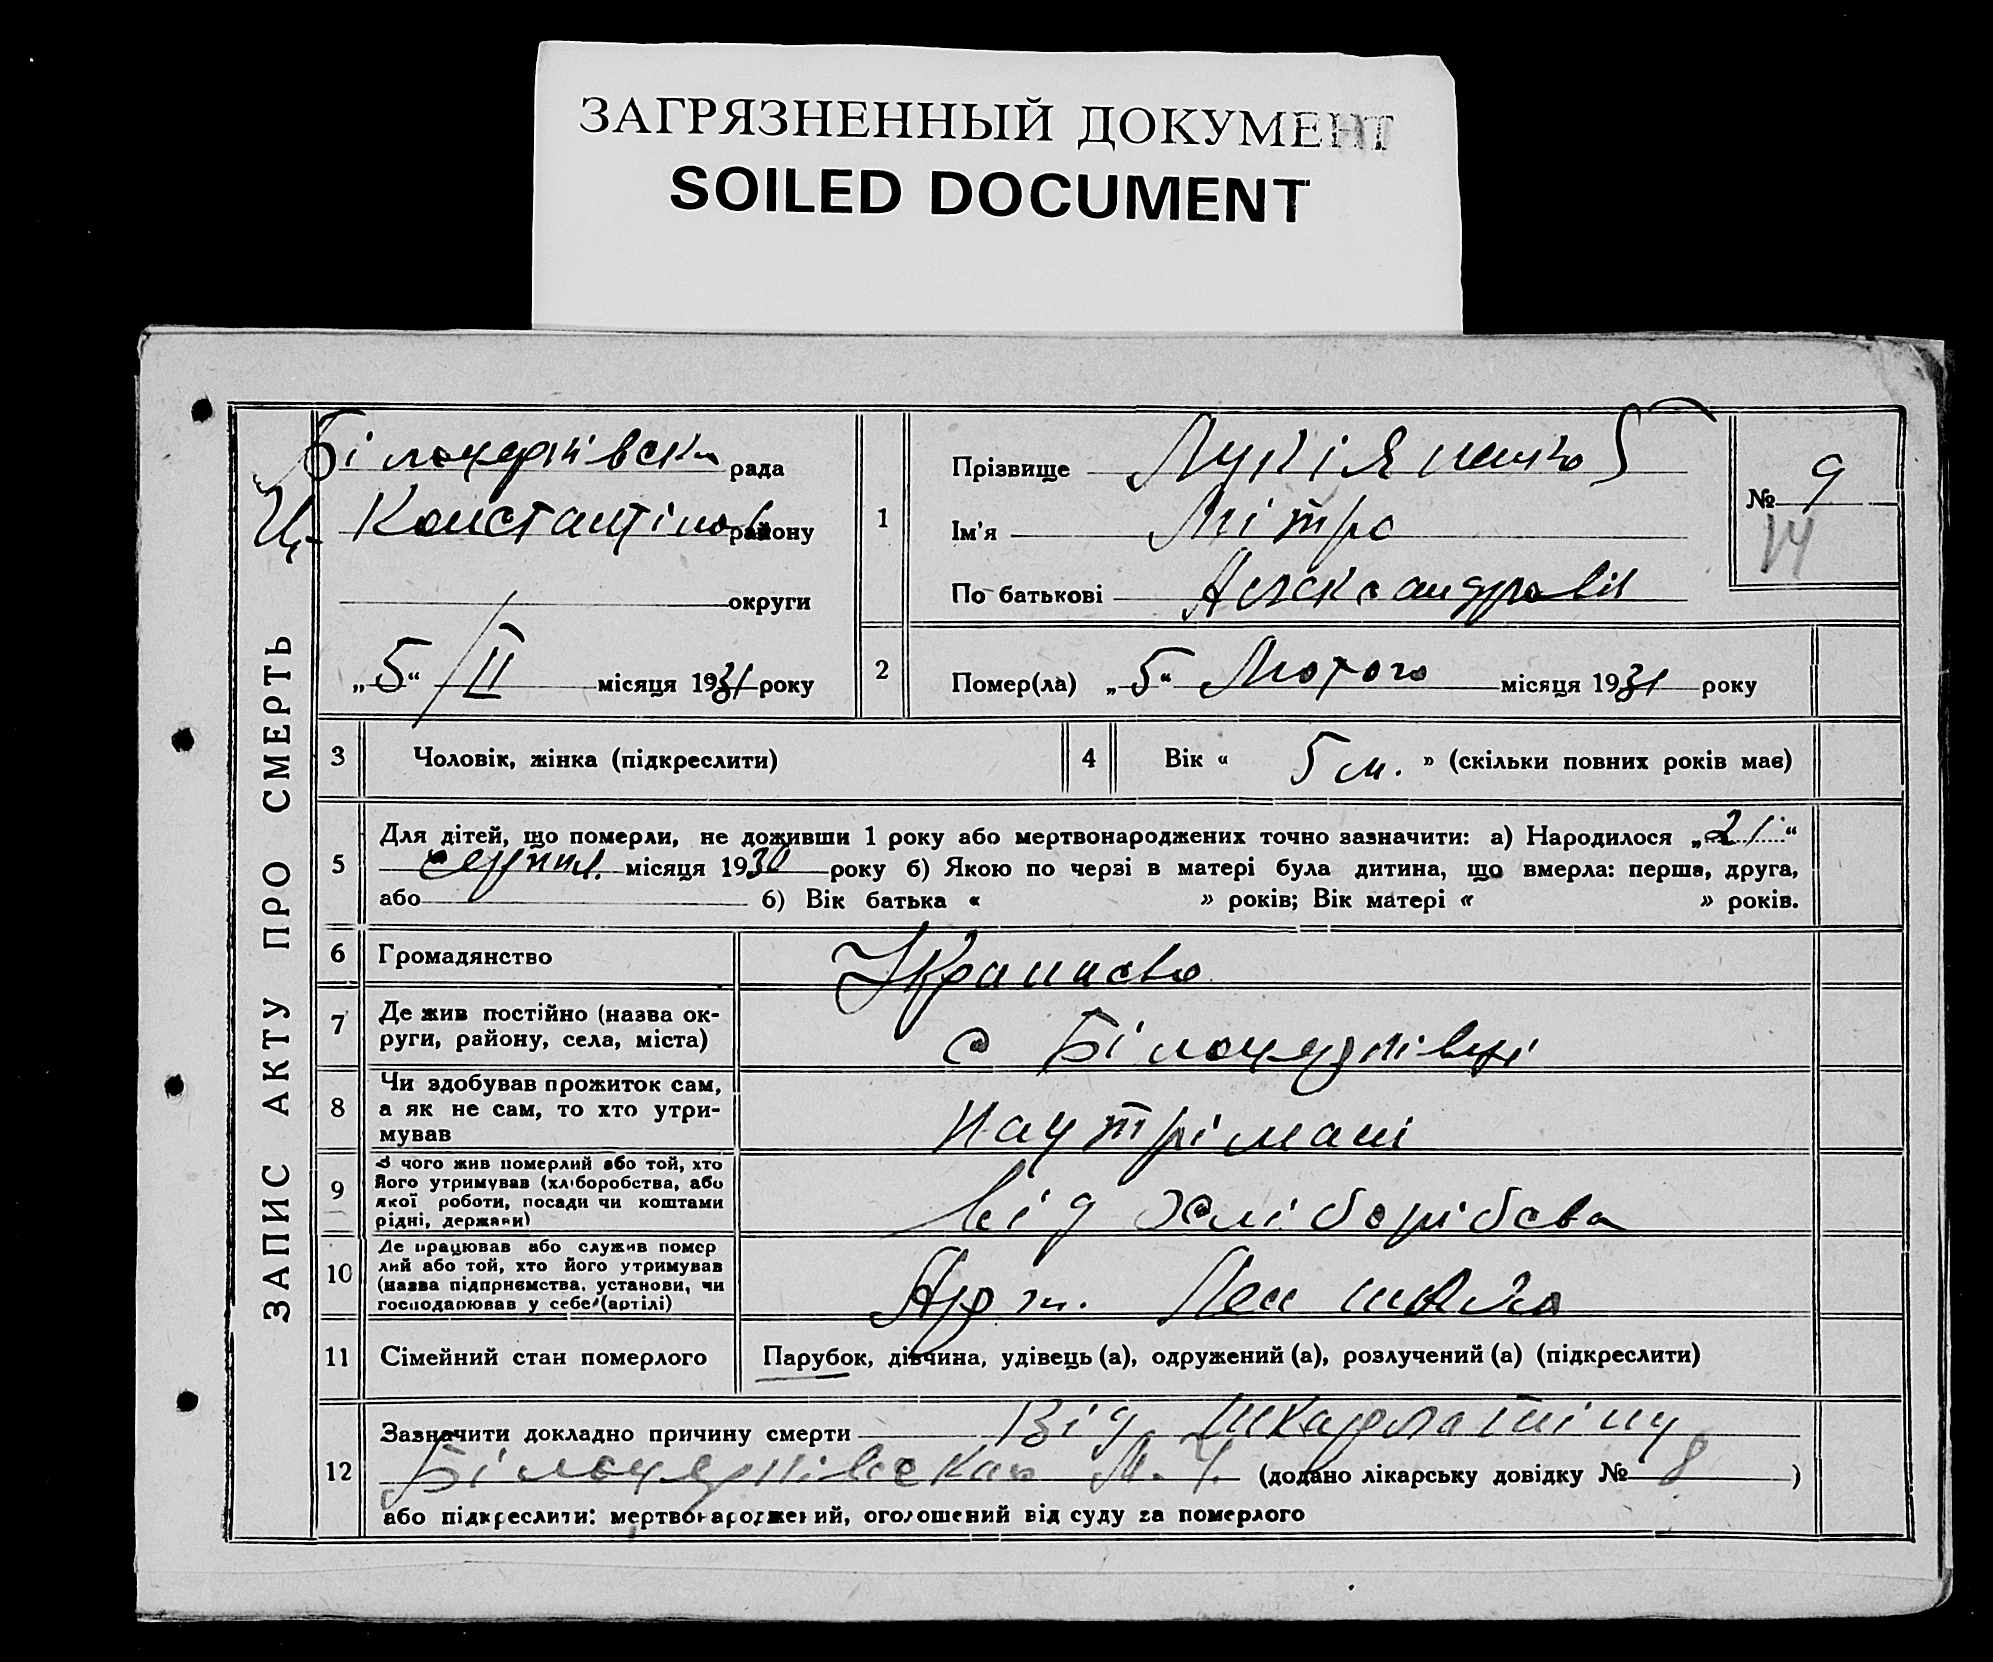 ЗАГРЯЗНЕННЫЙ ДОКУМЕНТ
SOILED DOCUMENT
ЗАПИС АКТУ ПРО СМЕРТЬ
рада
Константінов району
округи
„5“ / II місяця 1931 року
1
Прізвище Лукіянчко
Ім'я Мітро
По батькові Александровіч
№ 9
14
2
Помер(ла) „5“ Лютого місяця 1931 року
3
Чоловік, жінка (підкреслити)
4
Вік « 5 м. » (скільки повних років має)
5
Для дітей, що померли, не доживши 1 року або мертвонароджених точно зазначити: а) Народилося „21“
серпня місяця 1930 року б) Якою по черзі в матері була дитина, що вмерла: перша, друга,
або б) Вік батька « » років; Вік матері « » років.
6
Громадянство
7
Де жив постійно (назва ок-
руги, району, села, міста)
с
8
Чи здобував прожиток сам,
а як не сам, то хто утри-
мував
на утрімані
9
З чого жив померлий або той, хто
його утримував (хліборобства, або
якої роботи, посади чи коштами
рідні, держави)
від хліборібства
10
Де працював або служив помер
лий або той, хто його утримував
(назва підприємства, установи, чи
господарював у себе (артілі)
Арт.
11
Сімейний стан померлого
Парубок, дівчина, удівець (а), одружений (а), розлучений (а) (підкреслити)
12
Зазначити докладно причину смерти Від шкарлатіни
М. (додано лікарську довідку № 8 )
або підкреслити: мертвонароджений, оголошений від суду за померлого